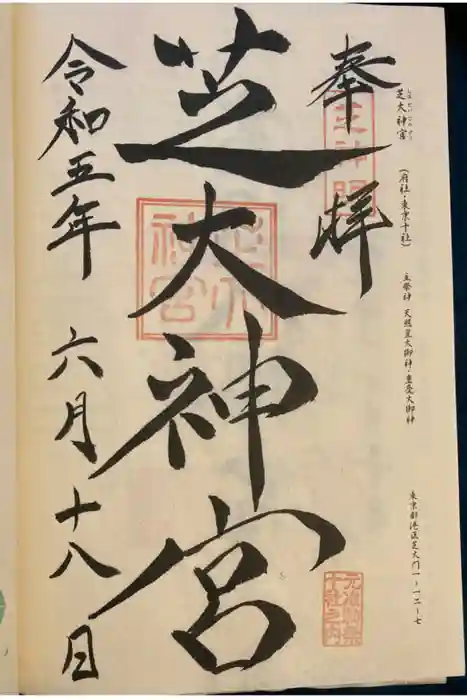 奉拝
芝神明
しばだいじんぐう
芝大神宮 (府社・東京十社) 主祭神 天照皇大御神・豊受大御神 東京都港区芝大門一-一二-七
芝大神宮
芝大神宮
元准勅祭十社之内
令和五年 六月十八日